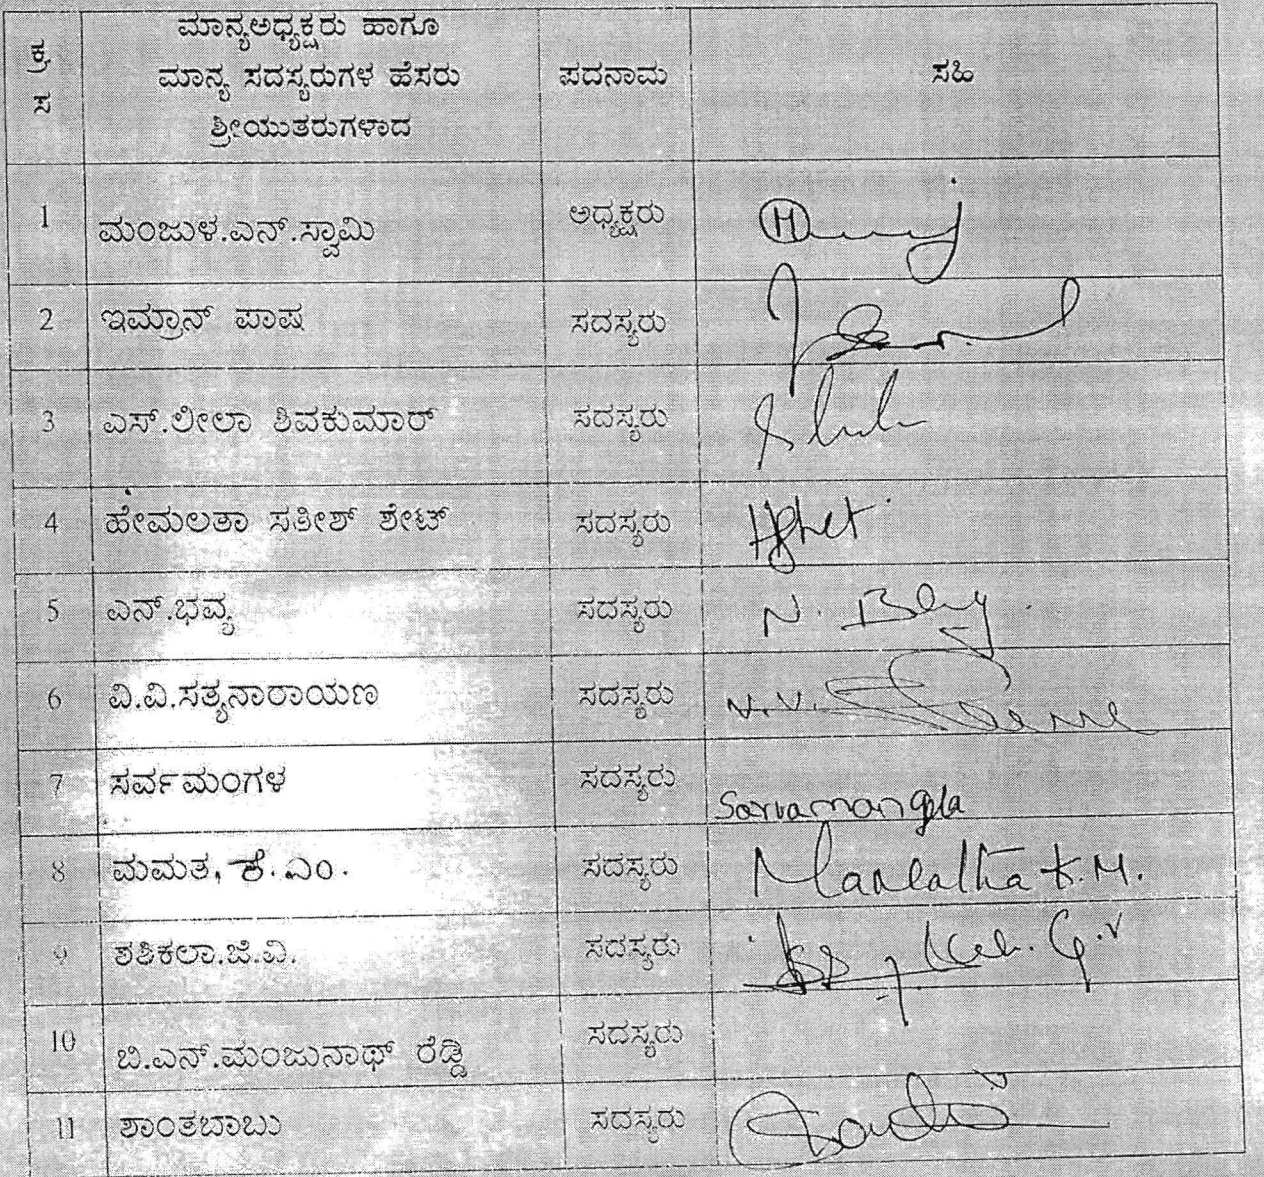 ಕ್ರ ಸ ಮಾನ್ಯಅಧ್ಯಕ್ಷರು ಹಾಗೂ
ಮಾನ್ಯ ಸದಸ್ಯರುಗಳ ಹೆಸರು ಪದನಾಮ ಸಹಿ
ಶ್ರೀಯುತರುಗಳಾದ
1 ಮಂಜುಳ.ಎನ್.ಸ್ವಾಮಿ ಅಧ್ಯಕ್ಷರು
2 ಇಮ್ರಾನ್ ಪಾಷ ಸದಸ್ಯರು
3 ಎಸ್.ಲೀಲಾ ಶಿವಕುಮಾರ್ ಸದಸ್ಯರು
4 ಹೇಮಲತಾ ಸತೀಶ್ ಶೇಟ್ ಸದಸ್ಯರು
5 ಎನ್.ಭವ್ಯ ಸದಸ್ಯರು
6 ವಿ.ವಿ.ಸತ್ಯನಾರಾಯಣ ಸದಸ್ಯರು
7 ಸರ್ವಮಂಗಳ ಸದಸ್ಯರು Sarvamangla
8 ಮಮತ, ಕೆ.ಎಂ. ಸದಸ್ಯರು Mamatha K.M.
9 ಶಶಿಕಲಾ.ಜಿ.ವಿ. ಸದಸ್ಯರು
10 ಬಿ.ಎನ್.ಮಂಜುನಾಥ್ ರೆಡ್ಡಿ ಸದಸ್ಯರು
11 ಶಾಂತಬಾಬು ಸದಸ್ಯರು